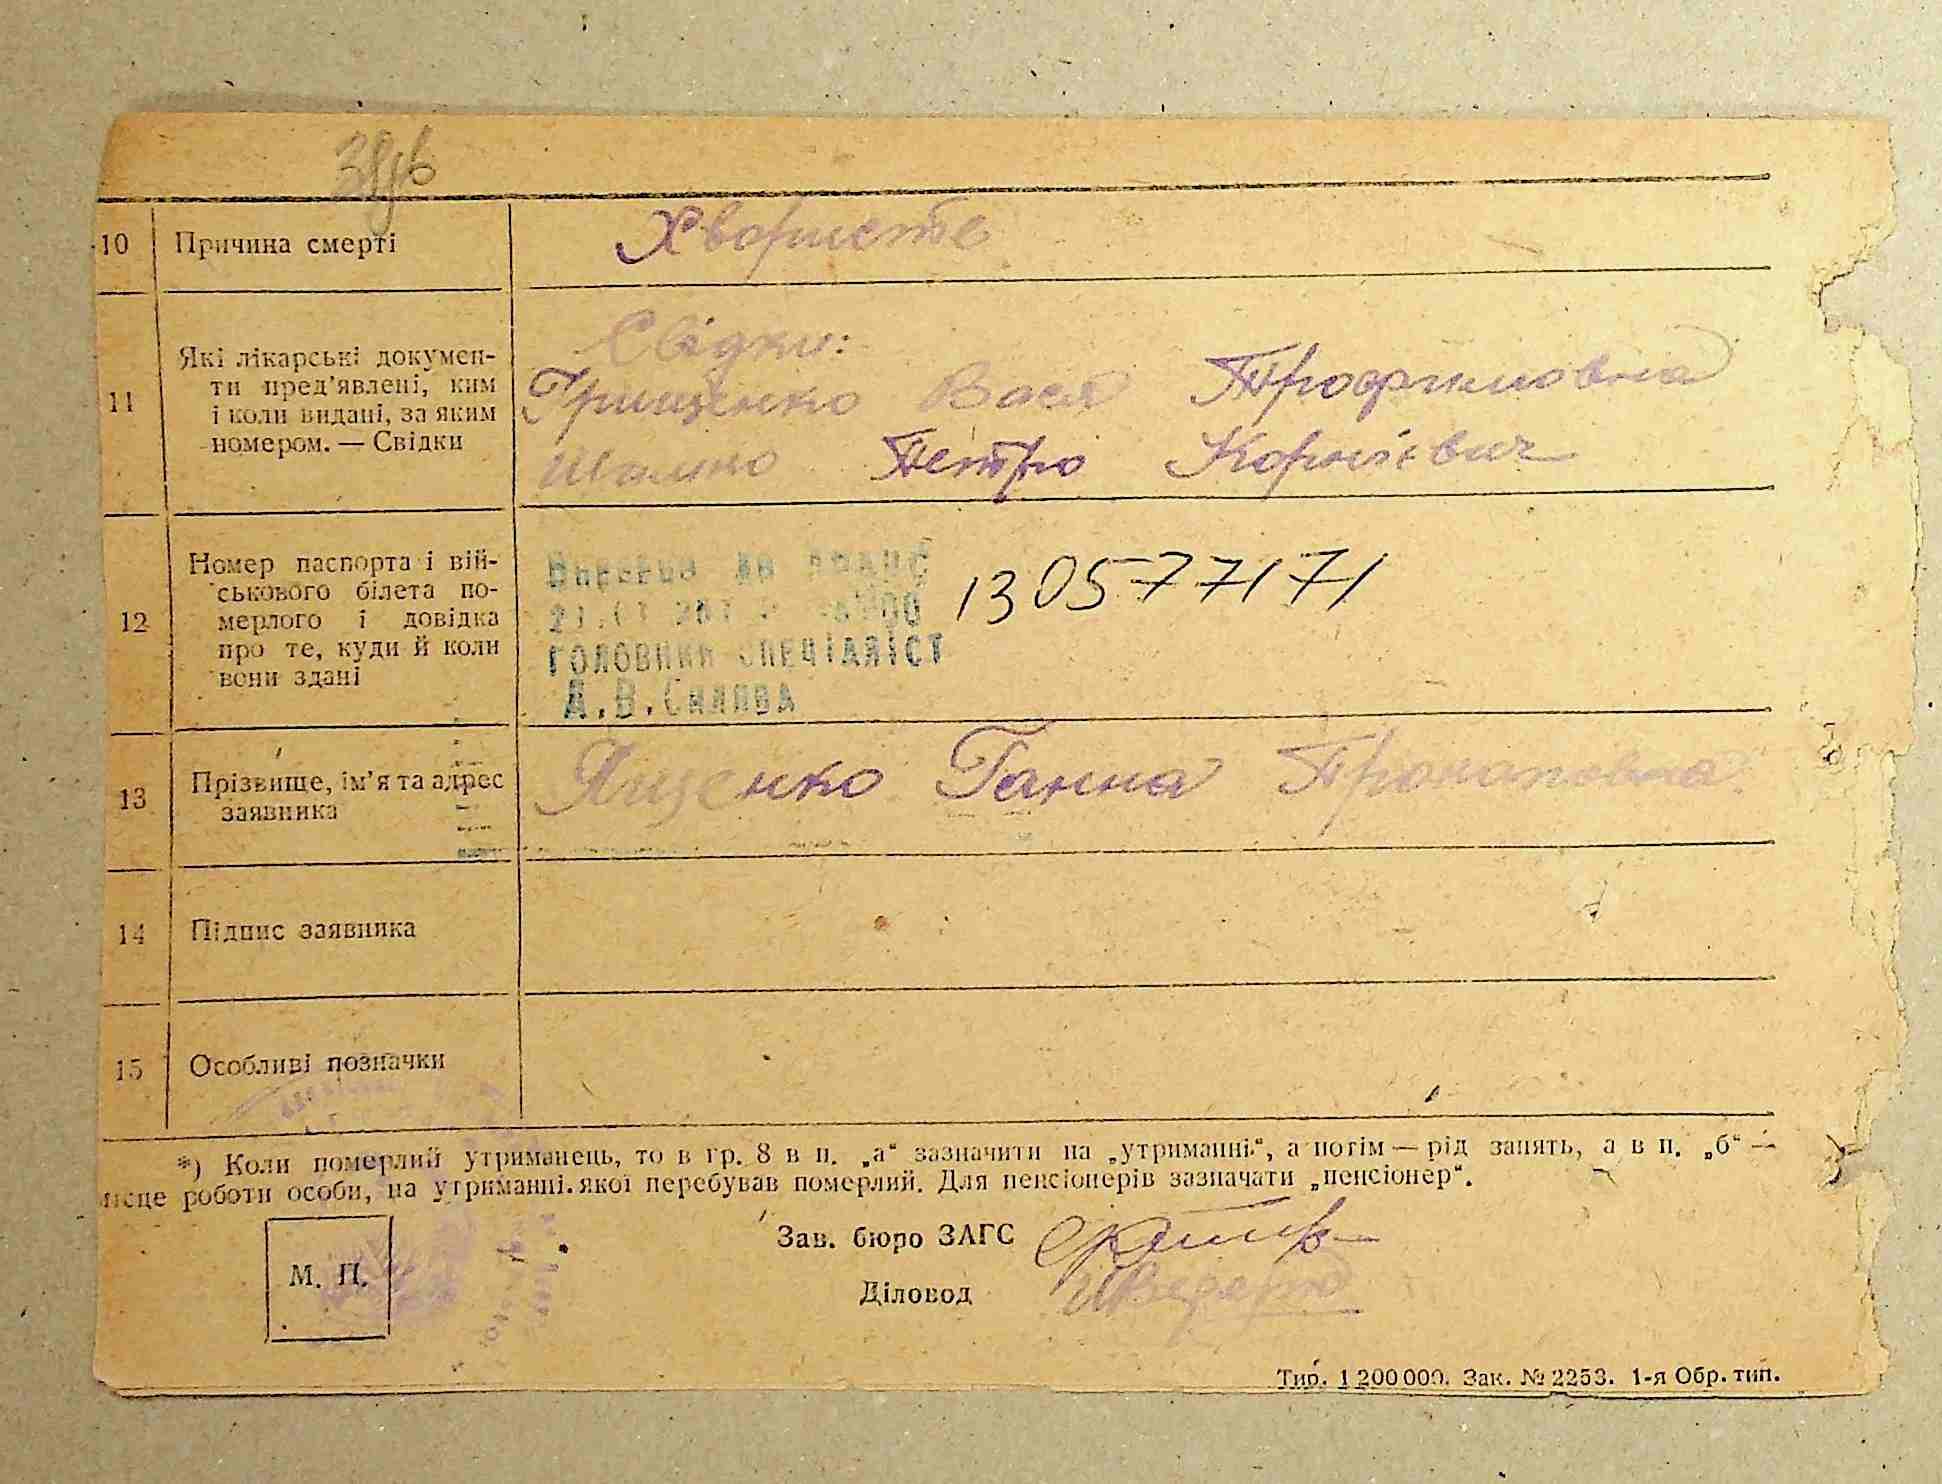 10 Причина смерті
11 Які лікарські докумен-
ти пред'явлені, ким
і коли видані, за яким
номером. — Свідки
Свідки:
Грищенко Вася Трофимовна
Петро Корнієвич
12 Номер паспорта і вій-
ськового білета по-
мерлого і довідка
про те, куди й коли
вони здані
ГОЛОВНИЙ СПЕЦІАЛІСТ
А.В.
130577171
13 Прізвище, ім'я та адрес
заявника
Ященко Ганна
14 Підпис заявника
15 Особливі позначки
*) Коли померлий утриманець, то в гр. 8 в п. „а“ зазначити на „утриманні“, а потім — рід занять, а в п. „б“ —
місце роботи особи, на утриманні якої перебував померлий. Для пенсіонерів зазначати „пенсіонер“.
М. П.
Зав. бюро ЗАГС
Діловод
Тир. 1 200 000. Зак. № 2253. 1-я Обр. тип.